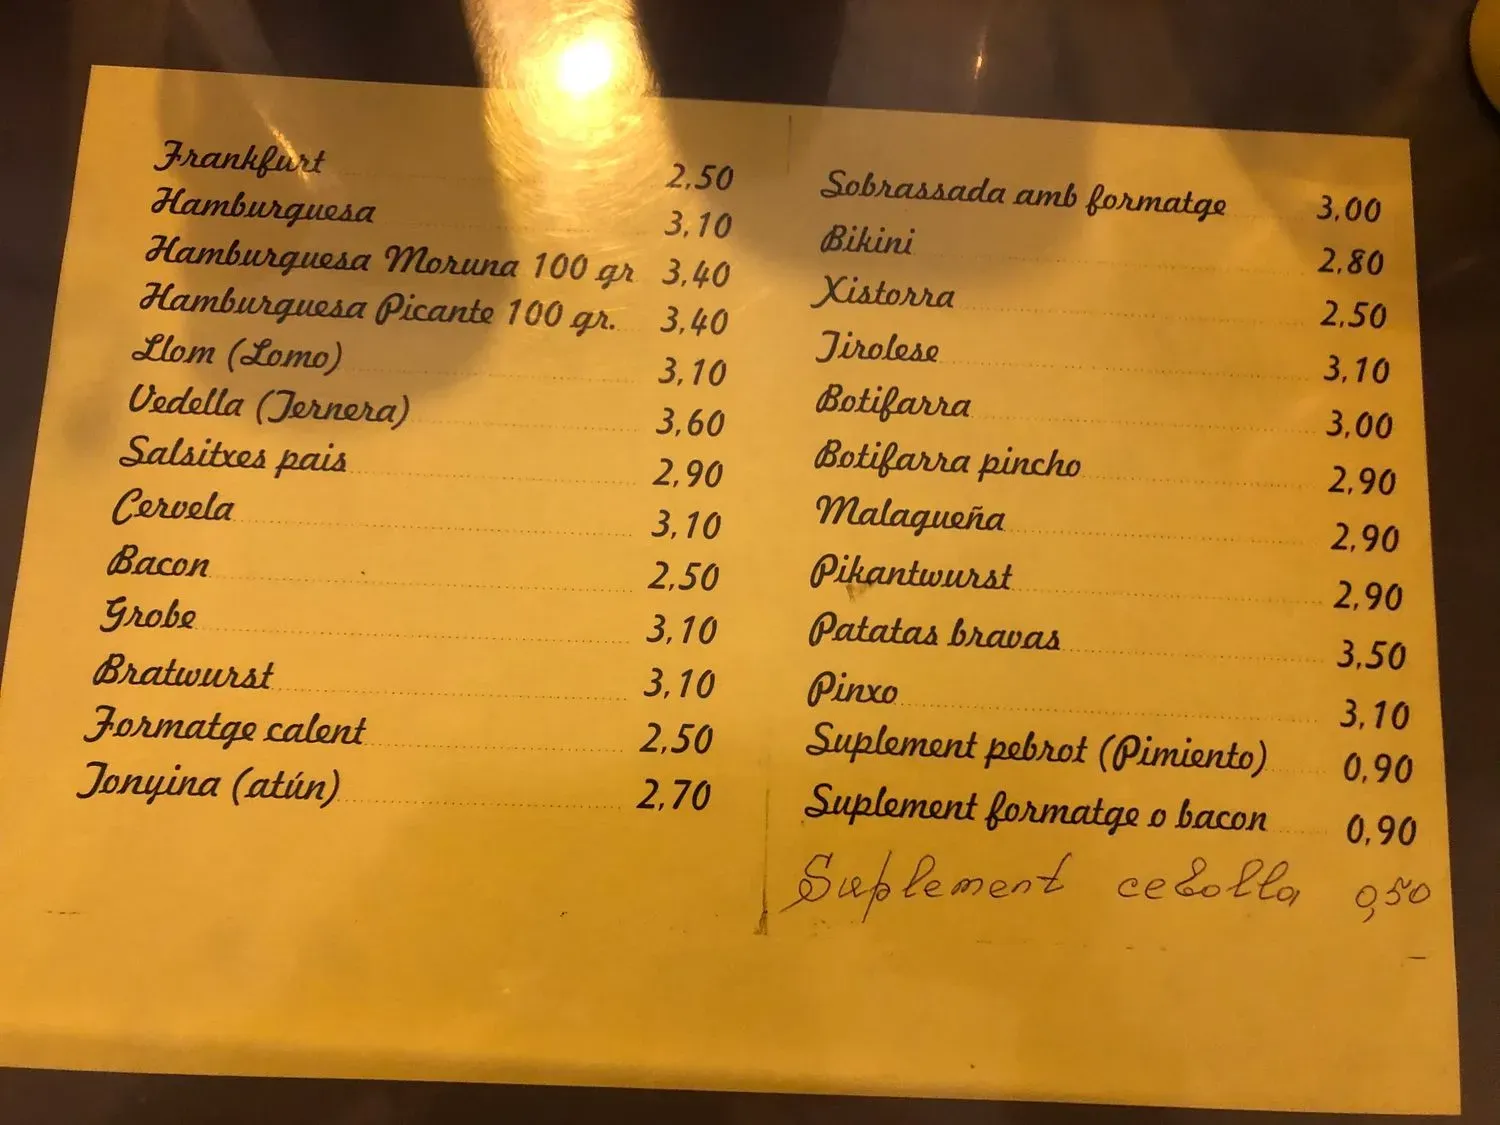 Frankfurt 2,50
Hamburguesa 3,10
Hamburguesa Moruna 100 gr 3,40
Hamburguesa Picante 100 gr. 3,40
Llom (Lomo) 3,10
Vedella (Ternera) 3,60
Salsitxes pais 2,90
Cervela 3,10
Bacon 2,50
Grobe 3,10
Bratwurst 3,10
Formatge calent 2,50
Tonyina (atún) 2,70
Sobrassada amb formatge 3,00
Bikini 2,80
Xistorra 2,50
Tirolese 3,10
Botifarra 3,00
Botifarra pincho 2,90
Malagueña 2,90
Pikantwurst 2,90
Patatas bravas 3,50
Pinxo 3,10
Suplement pebrot (Pimiento) 0,90
Suplement formatge o bacon 0,90
Suplement cebolla 0,50